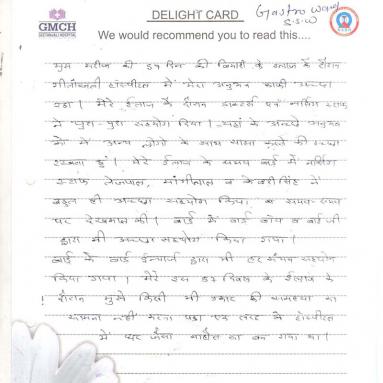 GMCH
GEETANJALI HOSPITAL
DELIGHT CARD
Gastro Ward
S.S.W
We would recommend you to read this....
मुझ मरीज की 57 दिन की बिमारी के इलाज के दौरान
गीतांजली हॉस्पीटल में मेरा अनुभव काफी अच्छा
रहा। मेरे ईलाज के दौरान डाक्टर्स एवं नर्सिंग स्टाफ
ने पुरा-पुरा सहयोग दिया। यहां के अच्छे अनुभव
को मैं अन्य लोगो के साथ साझा करने की इच्छा
रखता हुं। मेरे ईलाज के समय वार्ड में नर्सिंग
स्टाफ तेजपाल, मांगीलाल व केसरीसिंह ने
बहुत ही अच्छा सहयोग किया, व समय-समय
पर देखभाल की। वार्ड के वार्ड बॉय व बाई जी
द्वारा भी अच्छा सहयोग किया गया।
वार्ड के वार्ड ईन्चार्ज द्वारा भी हर संभव सहयोग
किया गया। मेरे इस 57 दिवस के ईलाज के
दौरान मुझे किसी भी प्रकार की समस्या का
सामना नहीं करना पड़ा एक तरह से हॉस्पीटल
में घर जैसा माहौल सा बन गया था।